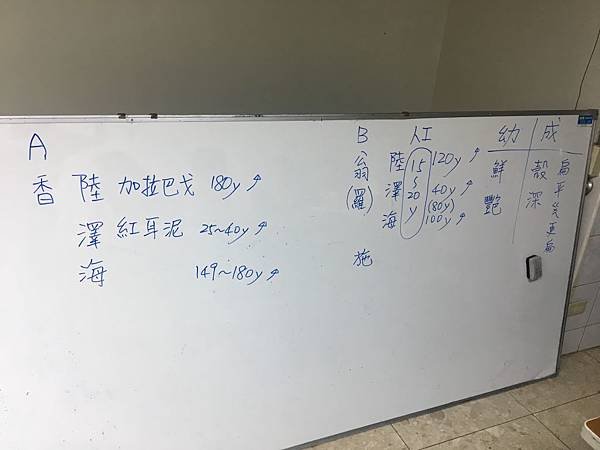 A
香 陸 加拉巴戈 180y↗
澤 紅耳泥 25~40y↗
海 149~180y↗
B 人工
翁 (羅)
陸 120y↗
澤 40y↗ (80y)
海 100y↗
15
~
20
y
施
幼 成
鮮艷 殼深
扁平
更扁